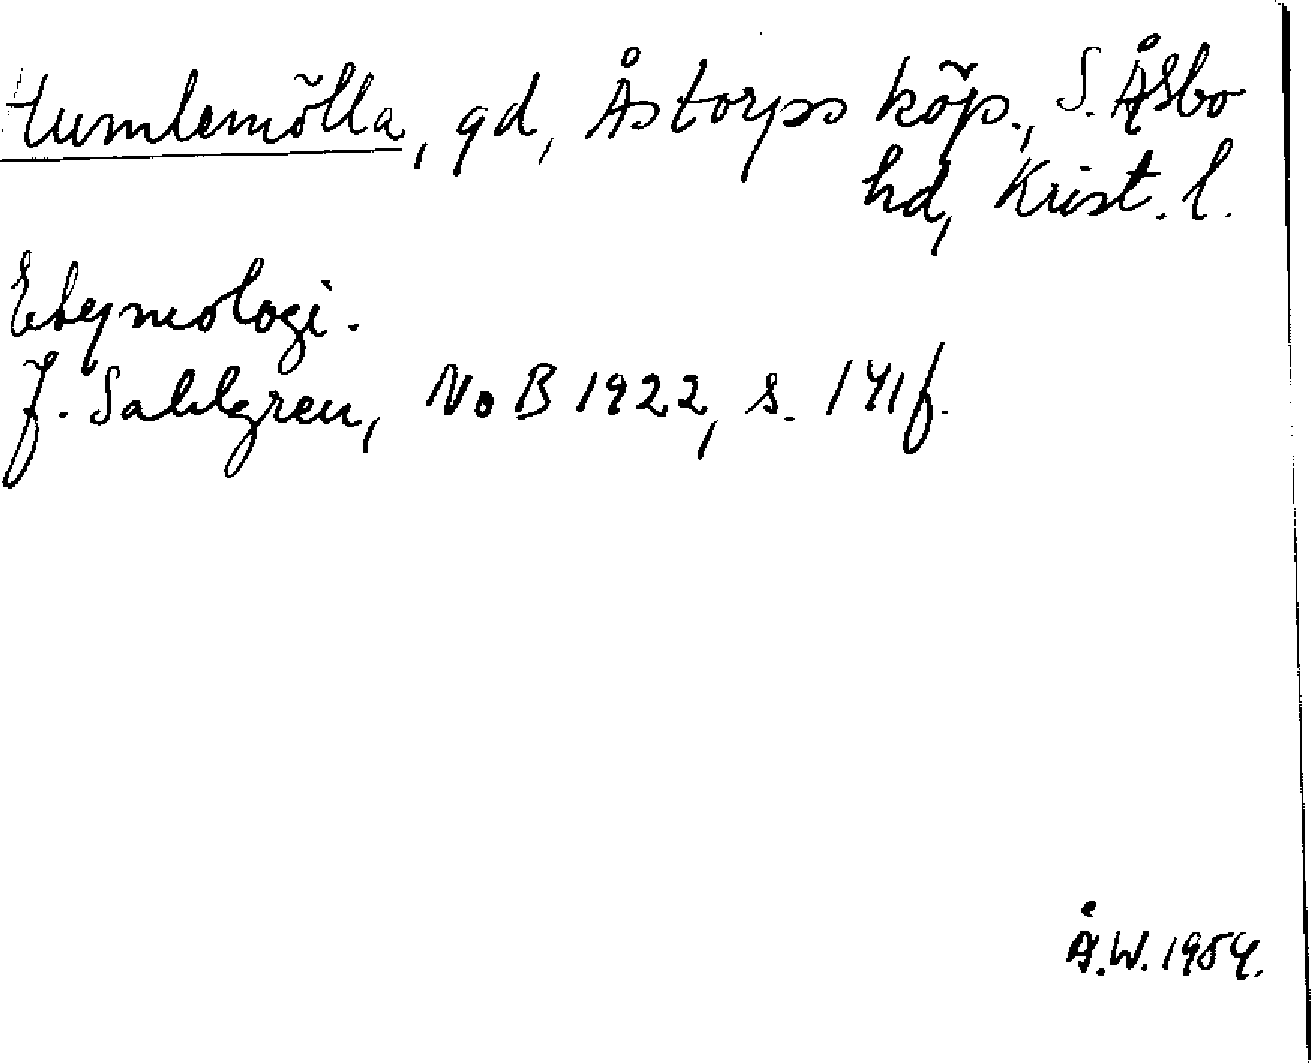 Humlemölla, gd, Åstorps köp., S. Åsbo
hd, Krist. l.
Etymologi.
J. Sahlgren, NoB 1922, s. 141f.
Å.W. 1954.